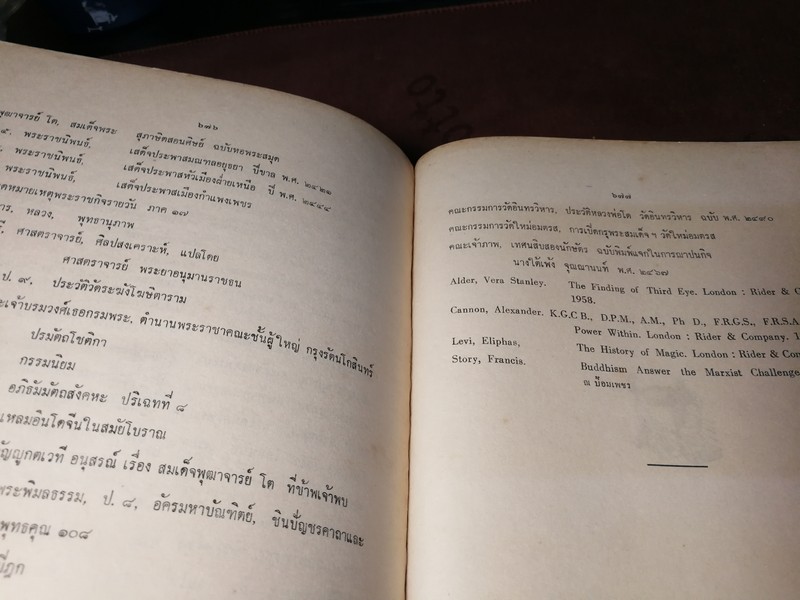 ๖๗๖
พุฒาจารย์ โต, สมเด็จพระ สุภาษิตสอนศิษย์ ฉบับหอพระสมุด
๕. พระราชนิพนธ์, เสด็จประพาสมณฑลอยุธยา ปีขาล พ.ศ. ๒๔๒๑
พระราชนิพนธ์. เสด็จประพาสหัวเมืองฝ่ายเหนือ ปี พ.ศ. ๒๔๔๔
พระราชนิพนธ์, เสด็จประพาสเมืองกำแพงเพชร
จดหมายเหตุพระราชกิจรายวัน ภาค ๑๗
หลวง, พุทธานุภาพ
ศาสตราจารย์, ศิลปสงเคราะห์, แปลโดย
ศาสตราจารย์ พระยาอนุมานราชธน
ป. ๑๙, ประวัติวัดระฆังโฆษิตาราม
พระเจ้าบรมวงศ์เธอกรมพระ, ตำนานพระราชาคณะชั้นผู้ใหญ่ กรุงรัตนโกสินทร์
ปรมัตถโชติกา
กรรมนิยม
อภิธัมมัตถสังคหะ ปริเฉทที่ ๘
แหลมอินโดจีนในสมัยโบราณ
กตัญญูกตเวที อนุสรณ์ เรื่อง สมเด็จพุฒาจารย์ โต ที่ข้าพเจ้าพบ
พระพิมลธรรม, ป. ๘, อัครมหาบัณฑิตย์, ชินบัญชรคาถาและ
พุทธคุณ ๑๐๘
๖๗๗
คณะกรรมการวัดอินทรวิหาร, ประวัติหลวงพ่อโต วัดอินทรวิหาร ฉบับ พ.ศ. ๒๔๙๐
คณะกรรมการวัดใหม่อมตรส, การเปิดกรุพระสมเด็จฯ วัดใหม่อมตรส
คณะเจ้าภาพ, เทศนาสิบสองนักษัตร ฉบับพิมพ์แจกในการฌาปนกิจ
นางใต้เพ้ง จุณณานนท์ พ.ศ. ๒๔๖๗
Alder, Vera Stanley. The Finding of Third Eye. London : Rider & C
1958.
Cannon, Alexander. K.G.C B., D.P.M., A.M., Ph D., F.R.G.S., F.R.S.A
Power Within. London : Rider & Company. 1
Levi, Eliphas, The History of Magic. London : Rider & Com
Story, Francis. Buddhism Answer the Marxist Challenge
ณ ป้อมเพชร